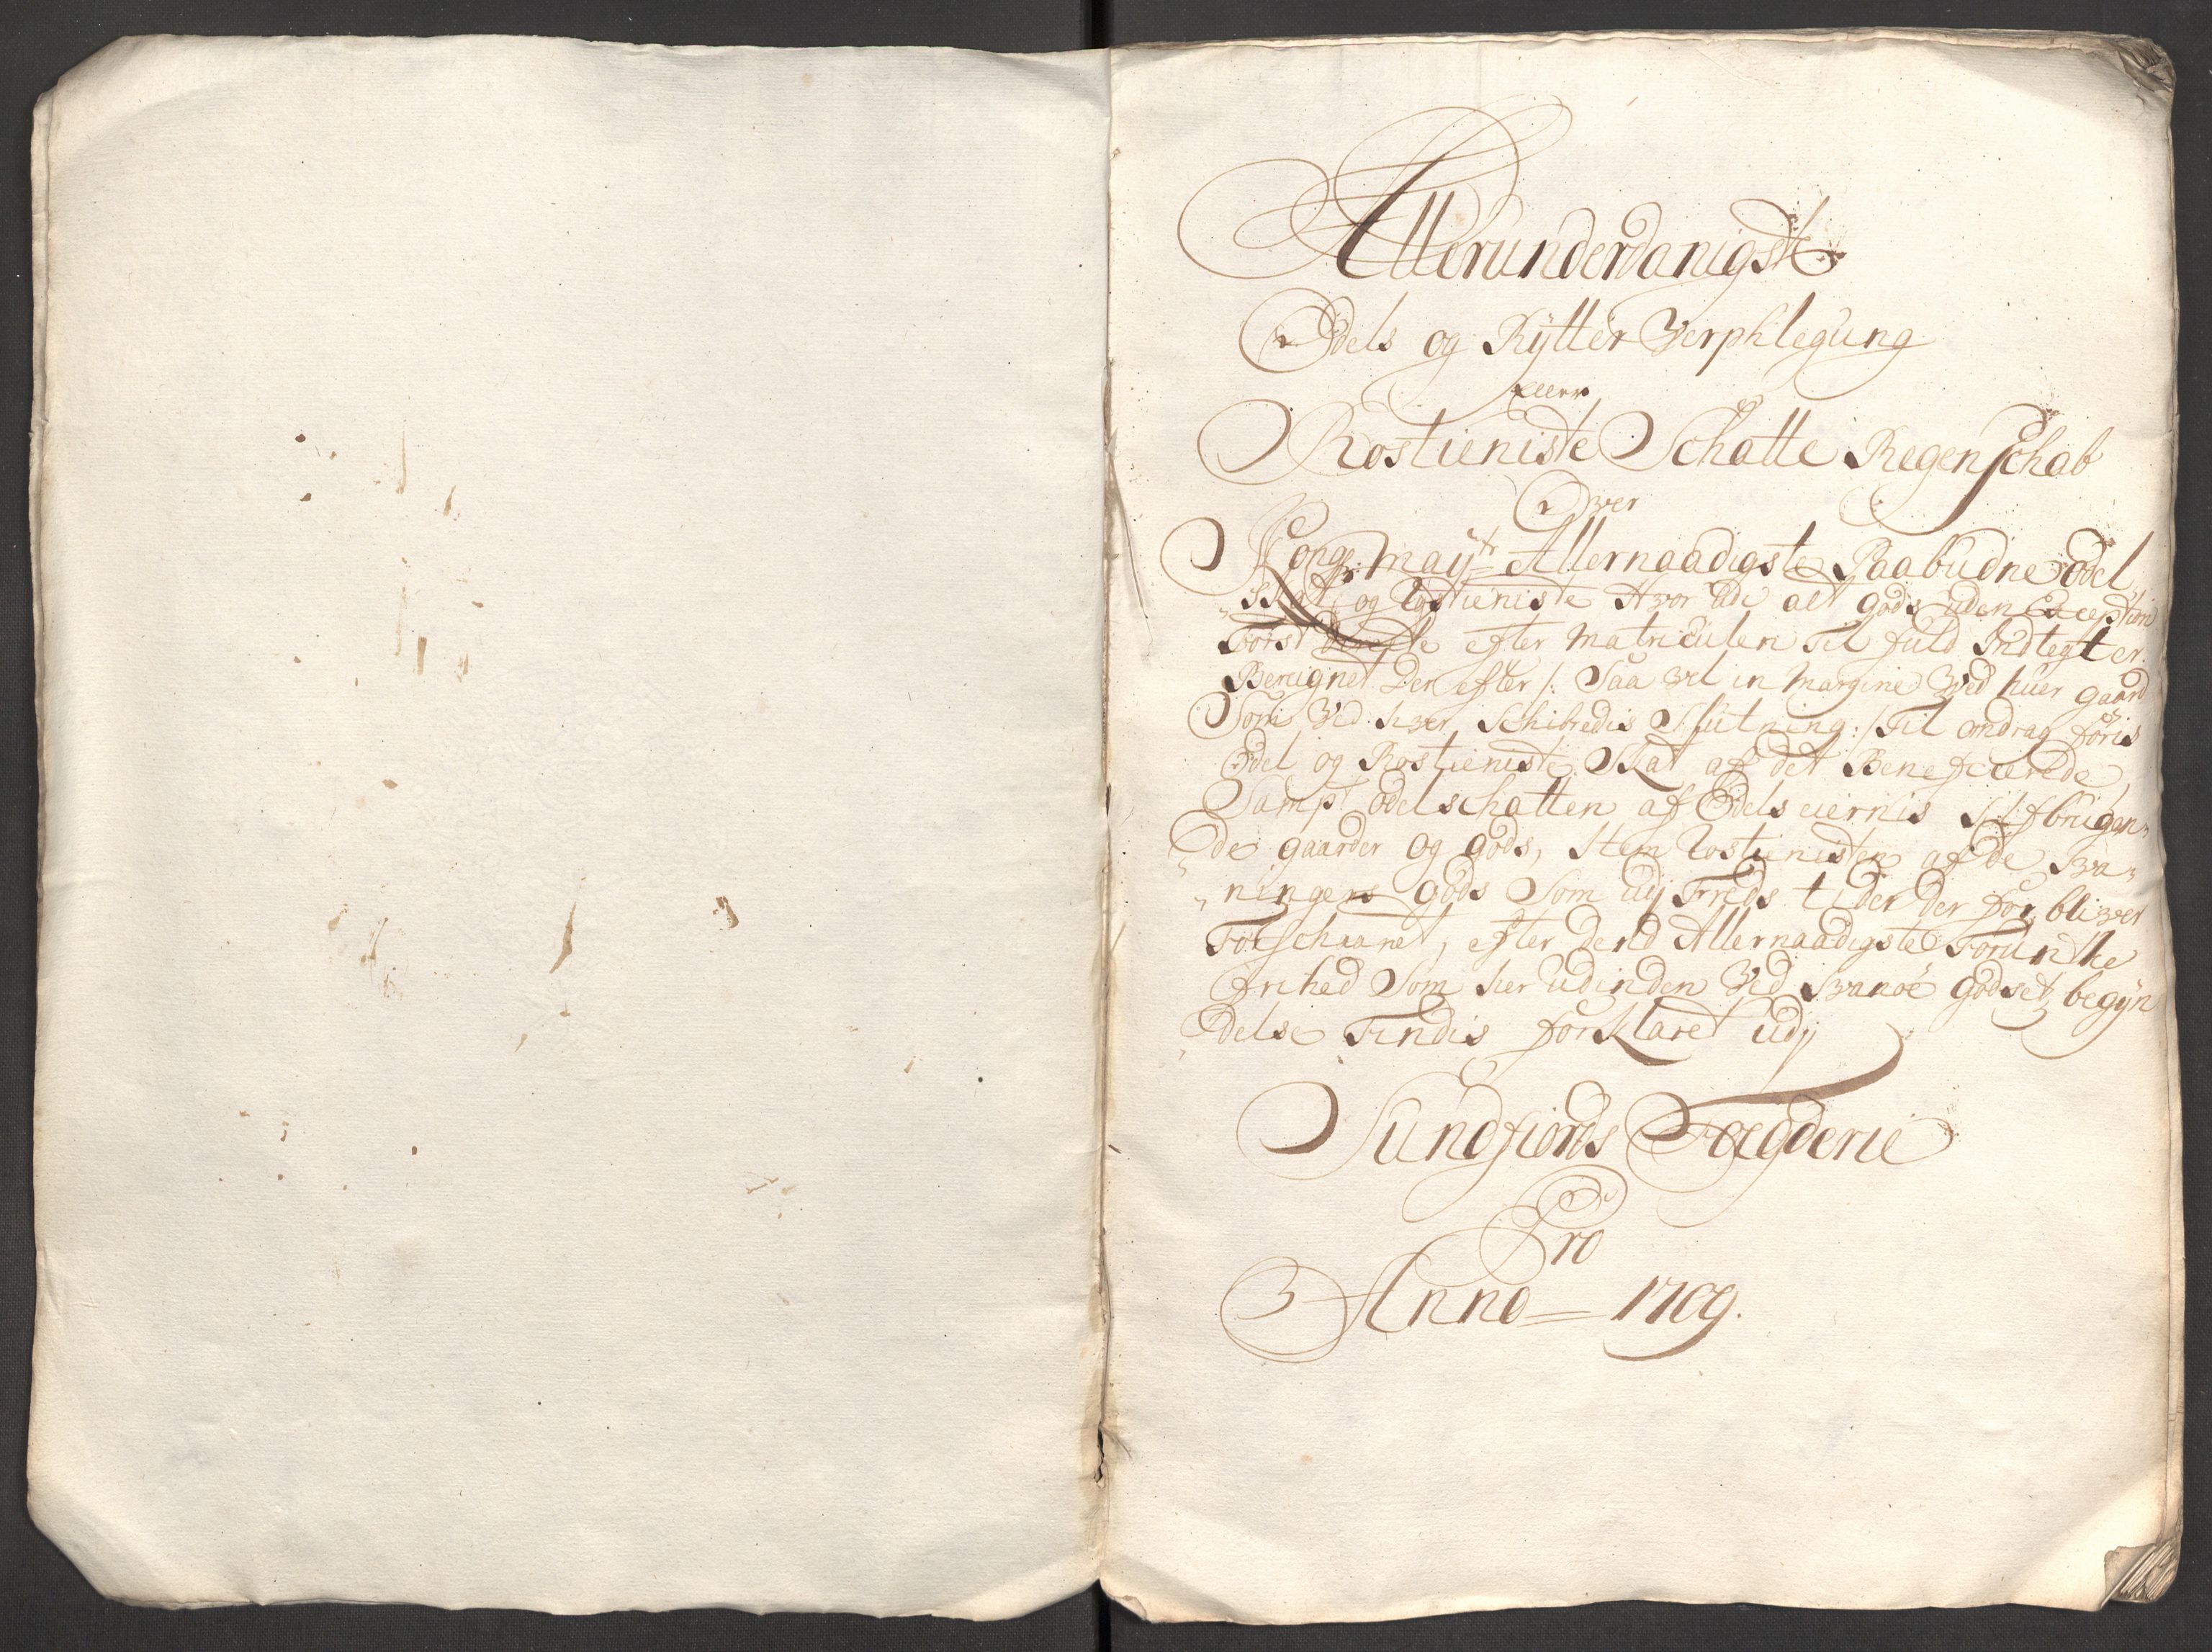 Allerunderdanigste
Odels og Rÿtter Verphlegung
Eller
Rostieniste Schatte Regenschab
Over
Kong: Maÿts Allernaadigste Paabudne Odel
Skat, og Rostieniste Hvor udi alt gods uden Exception
Først efter Matriculen Til fuld Indtegter
Beregnet Der efter /: Saa vel in Margine Ved huer gaard
Som Ved hver Schibredis Slutning :/ Til omdrag føris
Odel og Rostieniste Skat af det Beneficerede
Samp Odelschatten af Odels eiernis Selfbrugen-
de gaarder og gods, Item Rostienisten af de Sva-
ningens gods Som udj Freds tider der for bliver
Forschaanet, efter dend Allernaadigste Forundte
frihed Som her udinden Ved Svanøe godsets begÿn
delse Findis forklaret udj
Sundfiords Foegderie
Pro
Anno 1709.